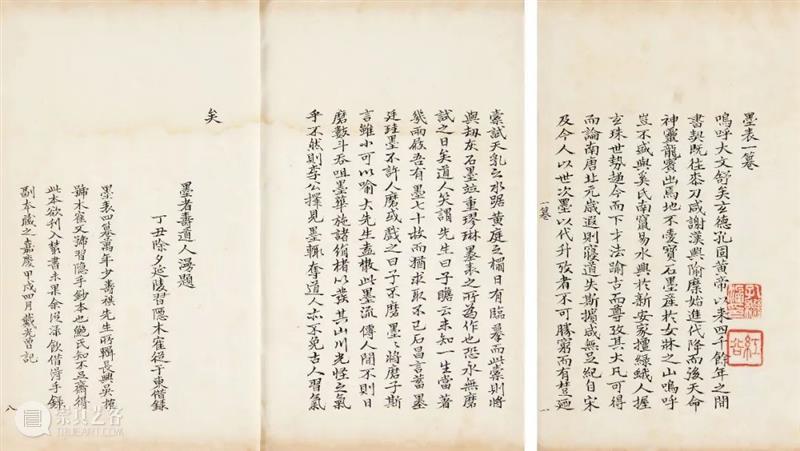 墨表一篹
嗚呼大文舒矣玄德孔固黄帝以来四千餘年之間
書契既往桼刀咸謝漢興隃糜始進代降而後天命
神靈龍賓出焉地不愛寶石墨產於女牀之山嗚呼
豈不盛與奚氏南竄易水興於新安家擅綠蛾人握
玄珠世勢趨今而下才法諭古而尊攷其大凡可得
而論南唐北元歲遐則寖道失斯攟咸無足紀自宋
及今人以世次墨以代升攷者不可勝窮而有楚廼
一篹
一
槖試天乳之水踞黄庭之榻日有臨摹而此槖則將
與刼灰石墨竝重璆琳墨表之所為作也恐永無磨
試之日矣道人笑謂先生曰子瞻云未知一生當著
幾兩屐吾有墨七十枚而猶求取不已石昌言蓄墨
廷珪墨不許人磨或戲之曰子不磨墨墨將磨子斯
言雖小可以喻大先生盍檄此墨流傳人間不則日
磨數斗吞咀墨華施諸綃楮以發其山川光怪之氣
乎不然則李公擇見墨輒奪道人亦不免古人習氣
矣
墨者壽道人湯題
丁丑除夕延陵習隱木雇從于東偕錄
墨表四篹萬年少壽祺先生所輯長興吳
號木雇又號習隱手鈔本也鮑氏知不足齋得
此本欲刊入叢書未果余從淥飲借得手錄
副本藏之嘉慶甲戌四月戴光曾記
八
崇真艺客